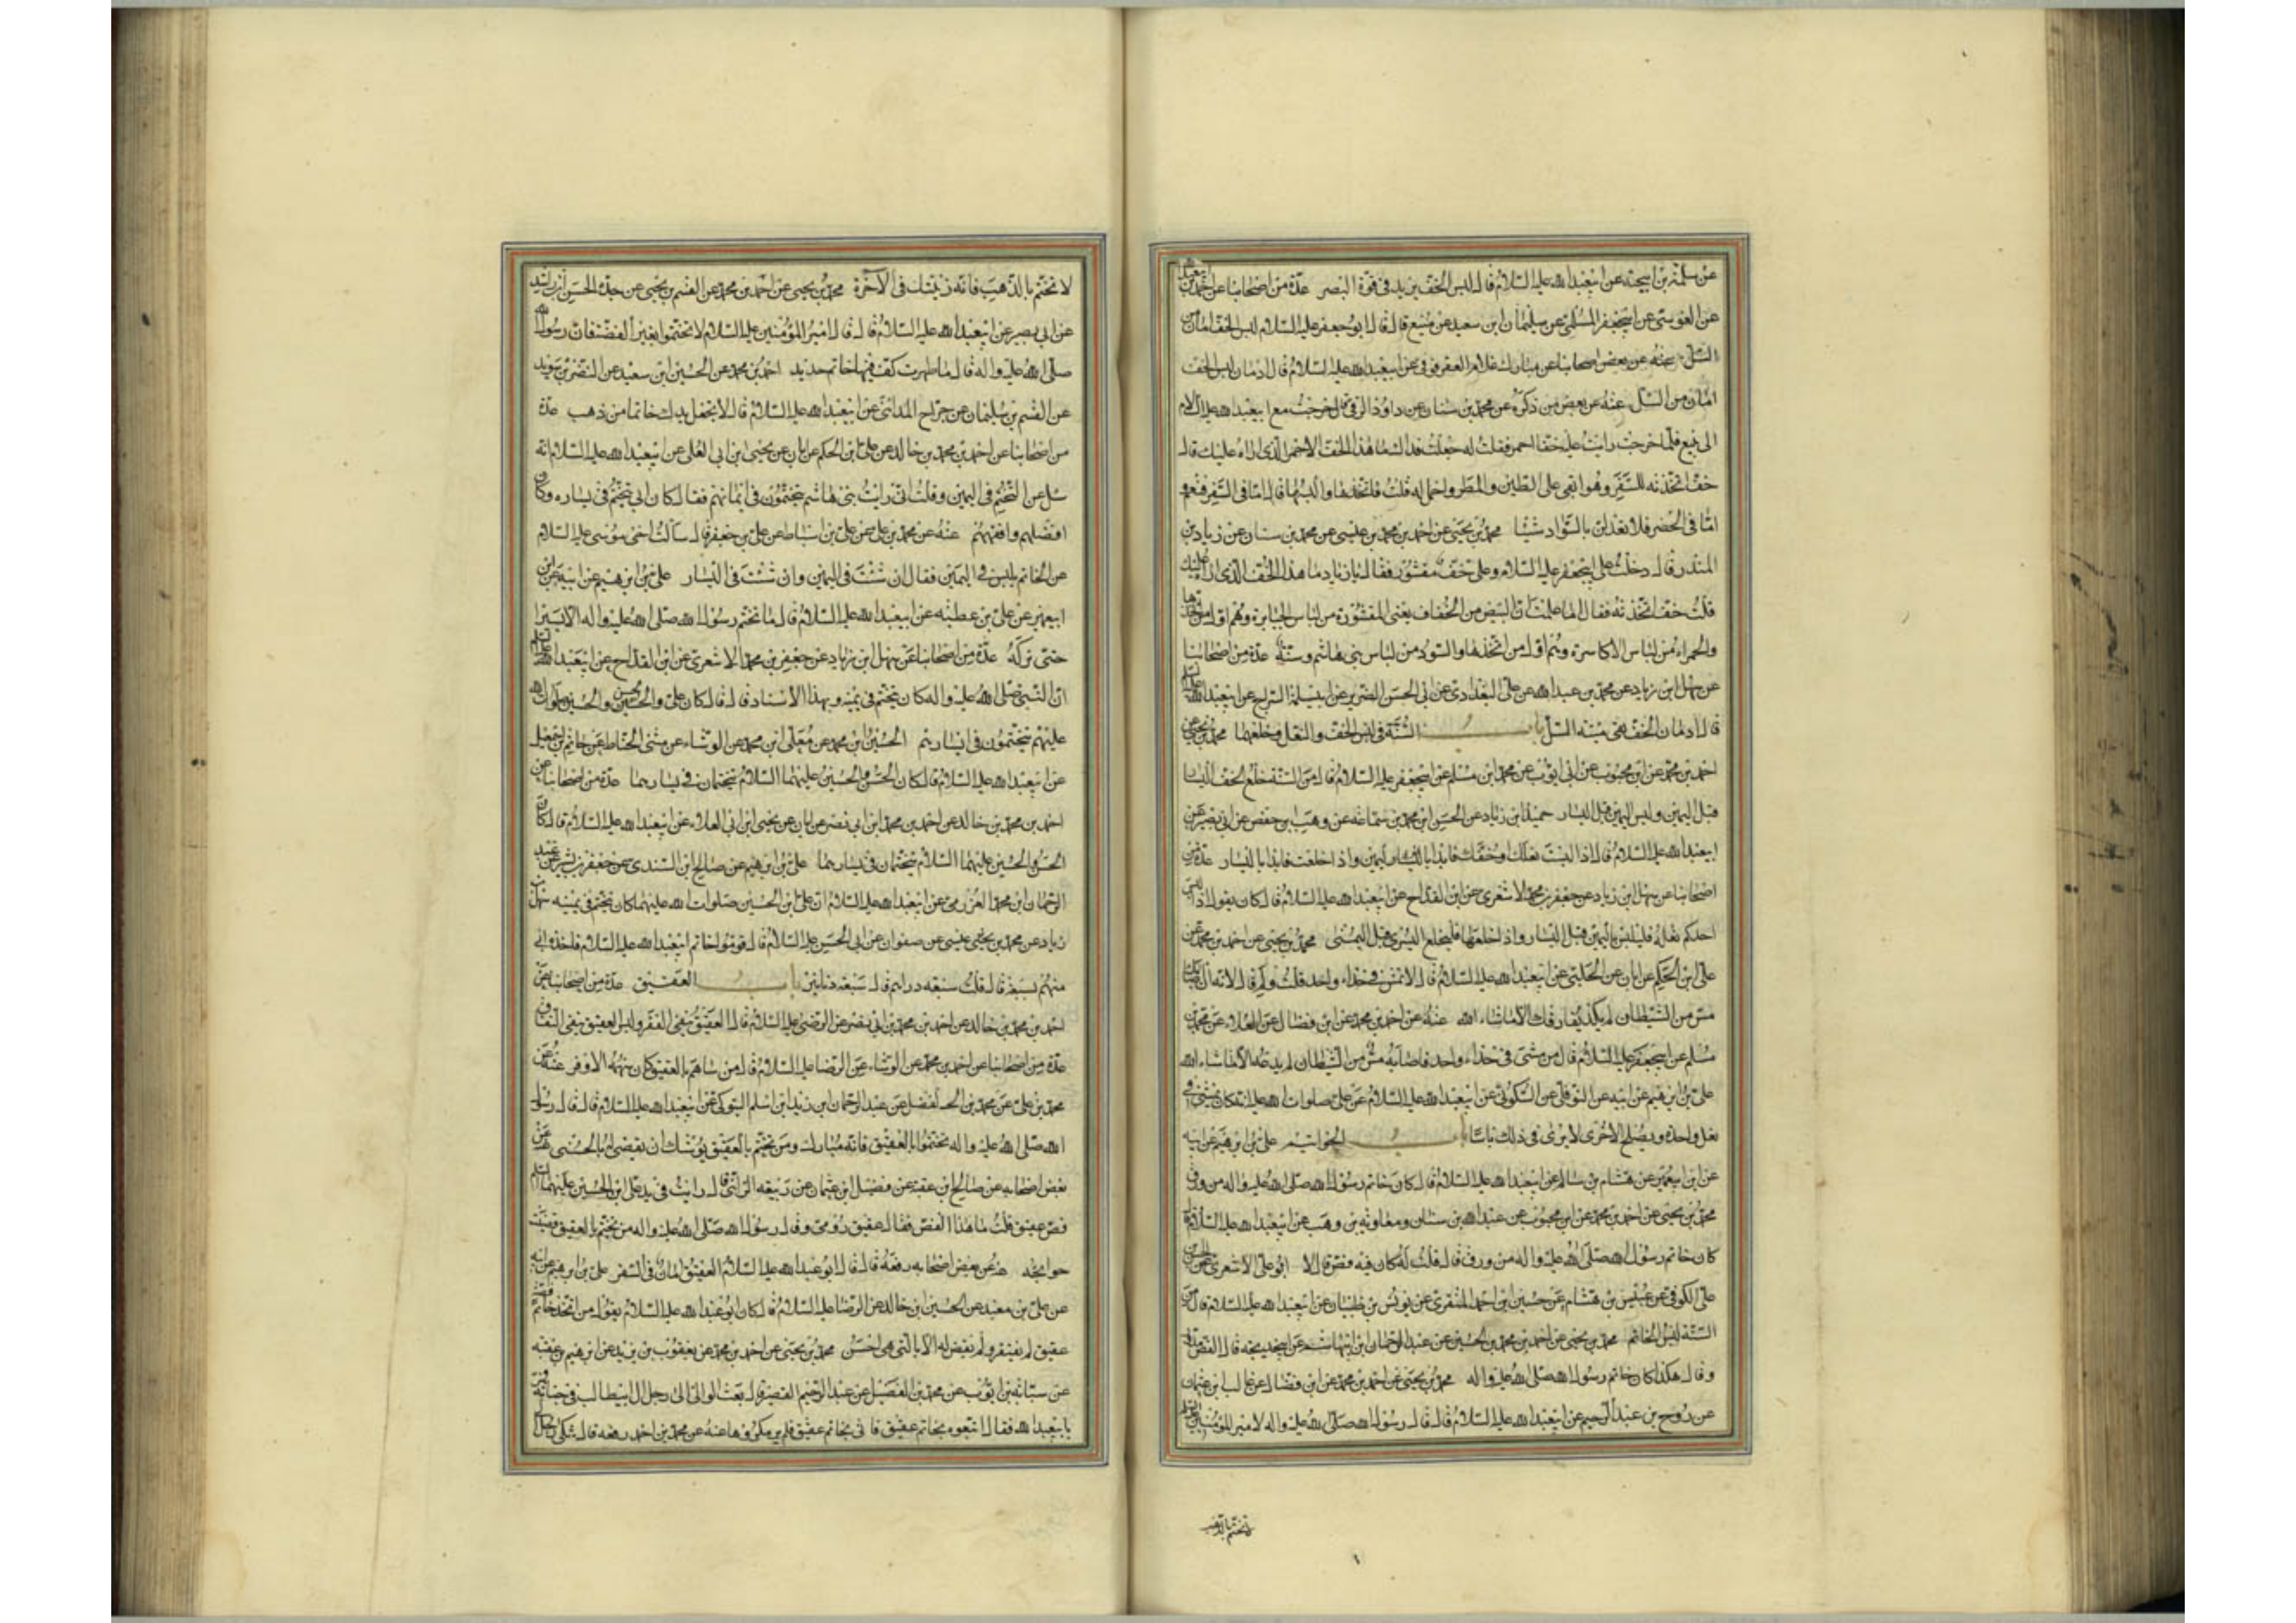 عن سلمة بن ابيجته عن ابيعبدالله عليه السلام قال لبس الخف يزيد في قوة البصر عدة من اصحابنا عن احمد بن ابيعبدالله
عن العوسي عن ابيجعفر المسلى عن سليمان ابن سعيد عن منيع قال قال ابو جعفر عليه السلام لبس الخف امان من
السل عنه عن بعض اصحابنا عن مبارك غلام العقرقوفى عن ابيعبدالله عليه السلام قال ادمان لبس الخف
امان من السل عنه عن بعض من ذكره عن محمد بن سنان عن داود الرقى قال خرجت مع ابيعبدالله عليه السلام
الى ينبع فلما خرجت رايت عليه خفا احمر فقلت له جعلت فداك ما هذا الخف الاحمر الذى اراه عليك قال
خف اتخذته للسفر وهو ابقى على الطين والمطر واحمل له قلت فاتخذها والبسها قال اما في السفر فنعم و
اما في الحضر فلا تعدلن بالسواد شيئا محمد بن يحيى عن احمد بن محمد بن عيسى عن محمد بن سنان عن زياد بن
المنذر قال دخلت على ابيجعفر عليه السلام وعلى خف مقشور فقال يا زياد ما هذا الخف الذى اراه عليك
قلت خف اتخذته فقال اما علمت ان البيض من الخفاف يعنى المقشورة من لباس الجبابرة وهم اول من اتخذها
والحمراء من لباس الاكاسرة وهم اول من اتخذها والسود من لباس بنى هاشم وسنة عدة من اصحابنا
عن سهل ابن زياد عن محمد بن عبدالله عن على البغدادى عن ابى الحسن الضرير عن ابيسلمة السراج عن ابيعبدالله عليه السلم
قال ادمان الخف يقى ميتة السل باب السنة في لبس الخف والنعل وخلعهما محمد بن يحيى عن
احمد بن محمد عن ابن محبوب عن ابى ايوب عن محمد ابن مسلم عن ابيجعفر عليه السلام قال من السنة خلع الخف اليسار
قبل اليمين ولبس اليمين قبل اليسار حميد ابن زياد عن الحسن ابن محمد بن سماعه عن وهيب ابن حفص عن ابى بصير عن
ابيعبدالله عليه السلام قال اذا لبست نعلك او خفك فابدا باليمين واذا خلعت فابدا باليسار عدة من
اصحابنا عن سهل ابن زياد عن جعفر بن محمد الاشعرى عن ابن القداح عن ابيعبدالله عليه السلام قال كان يقول اذا لبس
احدكم نعله فليلبس باليمين قبل اليسار واذا خلعها فليخلع اليسرى قبل اليمنى محمد بن يحيى عن احمد بن محمد عن
على ابن الحكم عن ابان عن الحلبى عن ابيعبدالله عليه السلام قال لا تمش في حذاء واحد قلت ولم قال لانه ان اصابك
مس من الشيطان لم يكد يفارقك الا ماشاء الله عنه عن احمد بن محمد عن ابن فضال عن العلاء عن محمد بن
مسلم عن ابيجعفر عليه السلام قال من مشى في حذاء واحد فاصابه مس من الشيطان لم يدعه الا ماشاء الله
على بن ابرهيم عن ابيه عن النوفلى عن السكونى عن ابيعبدالله عليه السلام عن على صلوات الله عليه انه كان يمشى في
نعل واحدة ويصلح الاخرى لا يرى في ذلك باسا باب الخواتيم على بن ابرهيم عن ابيه
عن ابن ابيعمير عن هشام بن سالم عن ابيعبدالله عليه السلام قال كان خاتم رسول الله صلى الله عليه واله من ورق
محمد بن يحيى عن احمد بن محمد عن ابن محبوب عن عبدالله بن سنان ومعاوية بن وهب عن ابيعبدالله عليه السلام قال
كان خاتم رسول الله صلى الله عليه واله من ورق قال قلت له كان فيه فص قال لا ابو على الاشعرى عن الحسن بن
على الكوفى عن عبيس بن هشام عن حسين ابن احمد المنقرى عن يونس بن ظبيان عن ابيعبدالله عليه السلام قال من
السنة لبس الخاتم محمد بن يحيى عن احمد بن محمد بن الحسين عن عبدالرحمان ابن ابيهاشم عن ابيخديجه قال الفص مدور
وقال هكذا كان خاتم رسول الله صلى الله عليه واله محمد بن يحيى عن احمد بن محمد عن ابن فضال عن غالب ابن عثمان
عن روح بن عبدالرحيم عن ابيعبدالله عليه السلام قال قال رسول الله صلى الله عليه واله لامير المؤمنين عليه السلم
تختم بالذهب
لا تختم بالذهب فانه زينتك في الآخرة محمد بن يحيى عن احمد بن محمد عن القسم بن يحيى عن جده الحسن ابن راشد
عن ابى بصير عن ابيعبدالله عليه السلام قال قال امير المؤمنين عليه السلام لا تختموا بغير الفضة فان رسول الله
صلى الله عليه واله قال ما طهرت كف فيها خاتم حديد احمد بن محمد عن الحسين ابن سعيد عن النضر بن سويد
عن القسم بن سليمان عن جراح المدائنى عن ابيعبدالله عليه السلام قال لا تجعل في يدك خاتما من ذهب عدة
من اصحابنا عن احمد بن محمد بن خالد عن على ابن الحكم عن ابان عن يحيى ابن ابى العلى عن ابيعبدالله عليه السلام انه
سئل عن التختم في اليمين وقلت انى رايت بنى هاشم يتختمون في ايمانهم فقال كان ابى يتختم في يساره وكان
افضلهم وافقههم عنه عن محمد بن على عن على بن اسباط عن على بن جعفر قال سألت اخى موسى عليه السلام
عن الخاتم يلبس في اليمين فقال ان شئت في اليمين وان شئت في اليسار على بن ابرهيم عن ابيه عن ابن
ابيعمير عن على بن عطيه عن ابيعبدالله عليه السلام قال ما تختم رسول الله صلى الله عليه واله الا يسيرا
حتى تركه عدة من اصحابنا عن سهل ابن زياد عن جعفر بن محمد الاشعرى عن ابن القداح عن ابيعبدالله عليه السلم
ان النبى صلى الله عليه واله كان يتختم في يمينه وبهذا الاسناد قال قال كان على والحسن والحسين صلوات الله
عليهم يتختمون في ايسارهم الحسين ابن محمد عن معلى ابن محمد عن الوشاء عن مثنى الحناط عن حاتم بن اسمعيل
عن ابيعبدالله عليه السلام قال كان الحسن والحسين عليهما السلام يتختمان في يسارهما عدة من اصحابنا عن
احمد بن محمد بن خالد عن احمد بن محمد ابن ابى نصر عن ابان عن يحيى ابن ابى العلاء عن ابيعبدالله عليه السلام قال كان
الحسن والحسين عليهما السلام يتختمان في يسارهما على بن ابرهيم عن صالح ابن السندى عن جعفر بن بشير عن عبد
الرحمان ابن محمد العزرمى عن ابيعبدالله عليه السلام ان على ابن الحسين صلوات الله عليهما كان يتختم في يمينه سهل بن
زياد عن محمد بن يحيى عيسى عن صفوان عن ابى الحسن عليه السلام قال قوموا خاتم ابيعبدالله عليه السلام فاخذه ابى
منهم بسبعة قال قلت سبعه دراهم قال سبعه دنانير باب العقيق عدة من اصحابنا عن
احمد بن محمد بن خالد عن احمد بن محمد بن ابى نصر عن الرضى عليه السلام قال العقيق ينفى الفقر ولبس العقيق ينفى النفاق
عدة من اصحابنا عن احمد بن محمد عن الوشاء عن الرضا عليه السلام قال من ساهم بالعقيق كان سهمه الاوفر عنه عن
محمد بن على عن محمد بن الفضل عن عبدالرحمان ابن زيد ابن اسلم التبوكى عن ابيعبدالله عليه السلام قال قال رسول
الله صلى الله عليه واله تختموا بالعقيق فانه مبارك ومن تختم بالعقيق يوشك ان يقضى له بالحسنى عنه عن
بعض اصحابه عن صالح بن عقبة عن فضيل ابن عثمان عن ربيعه الرأى قال رايت في يد على ابن الحسين عليهما السلم
فص عقيق قلت ما هذا الفص فقال عقيق رومى وقال رسول الله صلى الله عليه واله من تختم بالعقيق قضيت
حوائجه عنه عن بعض اصحابه رفعه قال قال ابو عبدالله عليه السلام العقيق امان في السفر على بن ابرهيم عن ابيه
عن على بن معبد عن الحسين ابن خالد عن الرضا عليه السلام قال كان ابو عبدالله عليه السلام يقول من اتخذ خاتما فصه
عقيق لم يفتقر ولم يقض له الا بالتى هى احسن محمد بن يحيى عن احمد بن محمد عن يعقوب بن يزيد عن ابرهيم بن عقبه
عن سيابة بن ايوب عن محمد بن الفضيل عن عبدالرحيم القصير قال بعث الوالى الى رجل من ال ابيطالب في جناية فمر
بابيعبدالله فقال اتبعوه بخاتم عقيق فاتى بخاتم عقيق فلم ير مكروها عنه عن محمد بن احمد رفعه قال شكى رجل